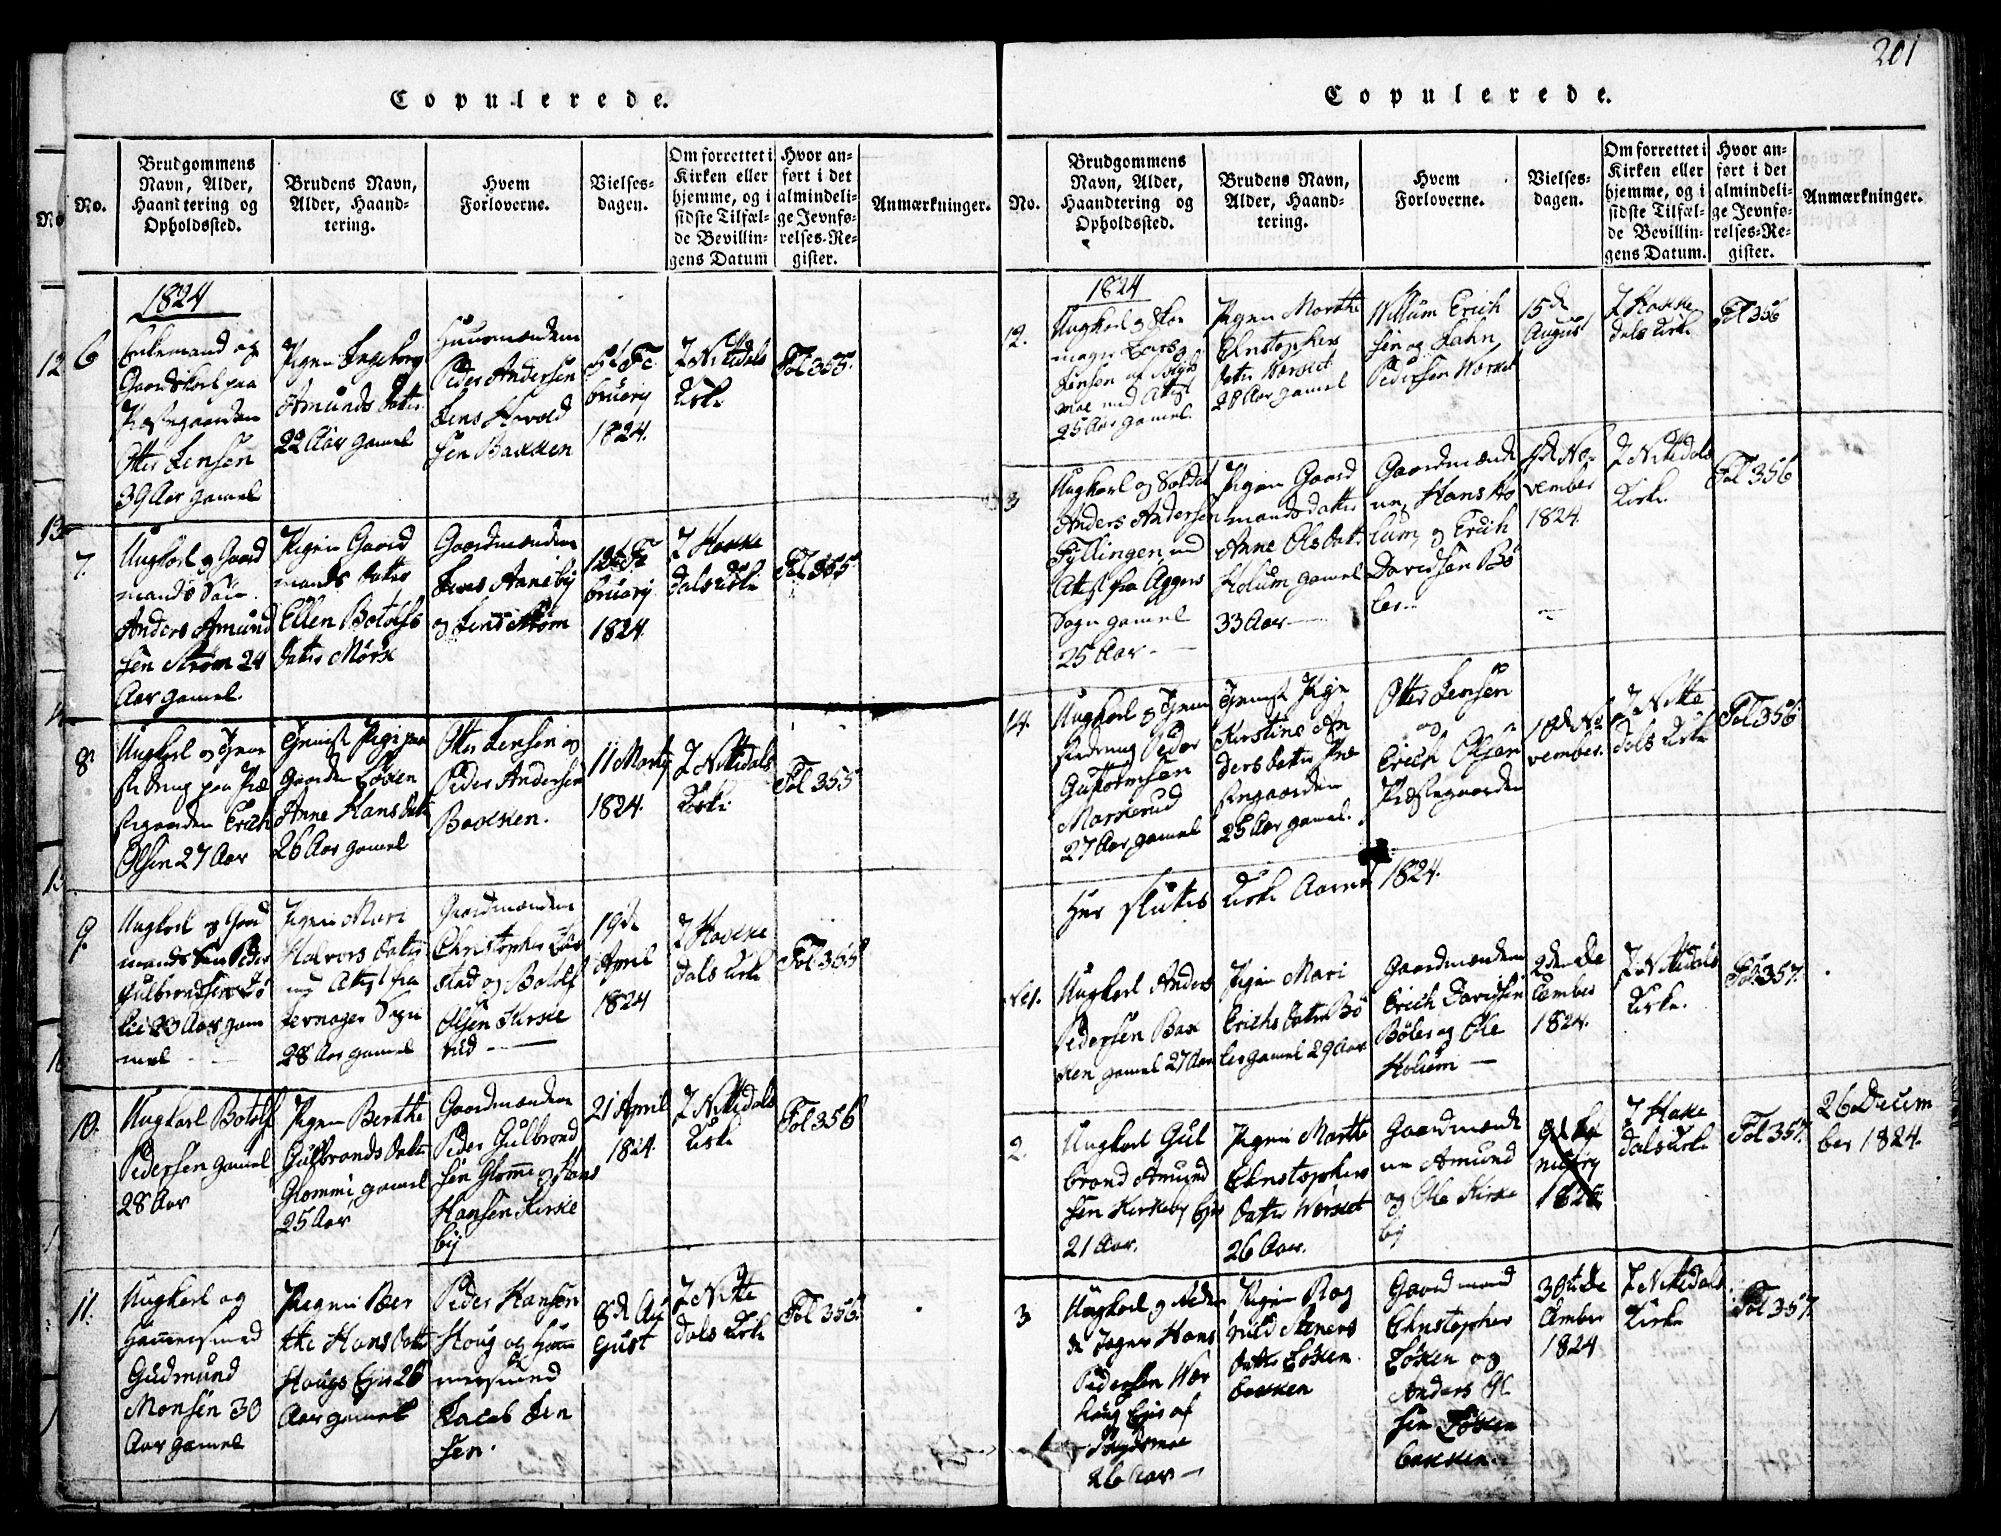 201
Copulerede.
No.
Brudgommens
Navn, Alder,
Haandtering og
Opholdssted.
Brudens Navn,
Alder, Haand-
tering.
Hvem
Forloverne.
Vielses-
dagen.
Om forrettet i
Kirken eller
hjemme, og i
sidste Tilfæl-
de Bevillin-
gens Datum
Hvor an-
ført i det
almindeli-
ge Jevnfø-
relses-Re-
gister.
Anmærkninger.
1824
6
Enkemand og
Gaardskarl paa
Præstegaarden
Otter Jensen
39 Aar gamel
Pigen Ingeborg
Amunds Datter
22 Aar gamel
Huusmændene
Peder Andersen
Jens Havold
sen Bakken
5t Fe
bruarj
1824.
I Nittedals
Kirke
Fol 355.
7.
Ungkarl og Gaard
mands Søn
Anders Amund
sen Strøm 24
Aar gamel.
Pigen Gaard
mands Datter
Ellen Botolfs
Datter Mørk
Gaardmændene
Lars Aaneby
og Jens Strøm
12t Fe
bruarj
1824.
I Hakke
dals Kirke
Fol 355
8
Ungkarl og Tjene
stedreng paa Præ
stegaarden Erich
Olsen 27 Aar
Tjenest Pige paa
Gaarden Løken
Anne Hans Datter
26 Aar gamel
Otter Jensen og
Peder Andersen
Bakken.
11 Martj
1824.
I Nittedals
Kirke
Fol 355
9.
Ungkarl og Gaard
mands Søn Peder
Gulbrandsen
23 Aar gam
mel
Pigen Mari
Halvors Datter
med Attest fra
Sogn
28 Aar gamel
Gaardmændene
Christopher
stad og Botolf
Olsen Kirke
rud
19de
April
1824
I Hakke
dals Kirke
Fol 355
10.
Ungkarl Botolf
Pedersen gamel
28 Aar
Pigen Berthe
Gulbrands Datter
Glommi gamel
25 Aar
Gaardmændene
Peder Gulbrand
sen Glomme og Hans
Hansen Kirke
by
21 April
1824.
I Nittedals
Kirke
Fol 356
11.
Ungkarl og
Hammersmed
Gudmund
Monsen 30
Aar gamel
Pigen Ber
the Hans Datter
Hougs Eje 26
Aar gamel
Peder Hansen
Houg og Ham
mersmed
Jacob Jen
sen.
8de Au
gust
I Nitte
dals Kirke
Fol 356.
Copulerede.
No.
Brudgommens
Navn, Alder,
Haandtering og
Opholdssted.
Brudens Navn,
Alder, Haand-
tering.
Hvem
Forloverne.
Vielses-
dagen.
Om forrettet i
Kirken eller
hjemme, og i
sidste Tilfæl-
de Bevillin-
gens Datum.
Hvor an-
ført i det
almindeli-
ge Jevnfø-
relses-Re-
gister.
Anmærkninger.
1824
12.
Ungkarl og Skoe
mager Lars
Jensen af
moe med Attest
25 Aar gamel.
Pigen Marthe
Christophers
DatterVærset
28 Aar gamel
Willum Erich
sen og
Pedersen Værset
15de
August
I Hakke
dals Kirke
Fol 356
3
Ungkarl og Soldat
Anders Andersen
Fyllingen, med
Attest fra Aggers
Sogn gamel
25 Aar.
Pigen Gaard
mands datter
Anne Ols Datter
Holum gamel
33 Aar
Gaardmænde
ne, Hans Ho
lum, og Erich
Davidsen Bø
ler.
No-
vember
1824.
I Nittedals
Kirke.
Fol 356
14.
Ungkarl og Tjene
stedreng Peder
Guttormsen
Markerud
27 Aar gamel
Tjenest Pige
Kirstine An
ders Datter Præ
stegaarden
25 Aar gamel.
Otter Jensen
og
Erich Olsen
Præstegaarden
No
vember.
I Nitte
dals Kirke
Fol 356
Her sluttes Kirke Aaret 1824.
No 1.
Ungkarl Anders
Pedersen Bak
ken gamel 27 Aar
Pigen Mari
Erichs Datter Bø
ler gamel 29 Aar
Gaardmændene
Erich Davidsen
Bøler og Ole
Holum
2den De
cember
1824.
I Nittedals
Kirke.
Fol. 357.
2.
Ungkarl Gul
brand Amund
sen Kirkeby Eje
21 Aar.
Pigen Marthe
Christophers
Datter Værset
26 Aar.
Gaardmænde
ne Amund
og Ole Kirke
by
I Hake
dals Kirke
Fol 357.
26 Decem
ber 1824.
3
Hans
Pedersen
Eje af
26 Aar
Pigen Rag
nild Steners
Datter Løken
bakken
Gaardmand
Christopher
Løken og
Anders Ol
sen Løken
bakken.
30te De
cember
1824
I Nittedals
Kirke
Fol 357.